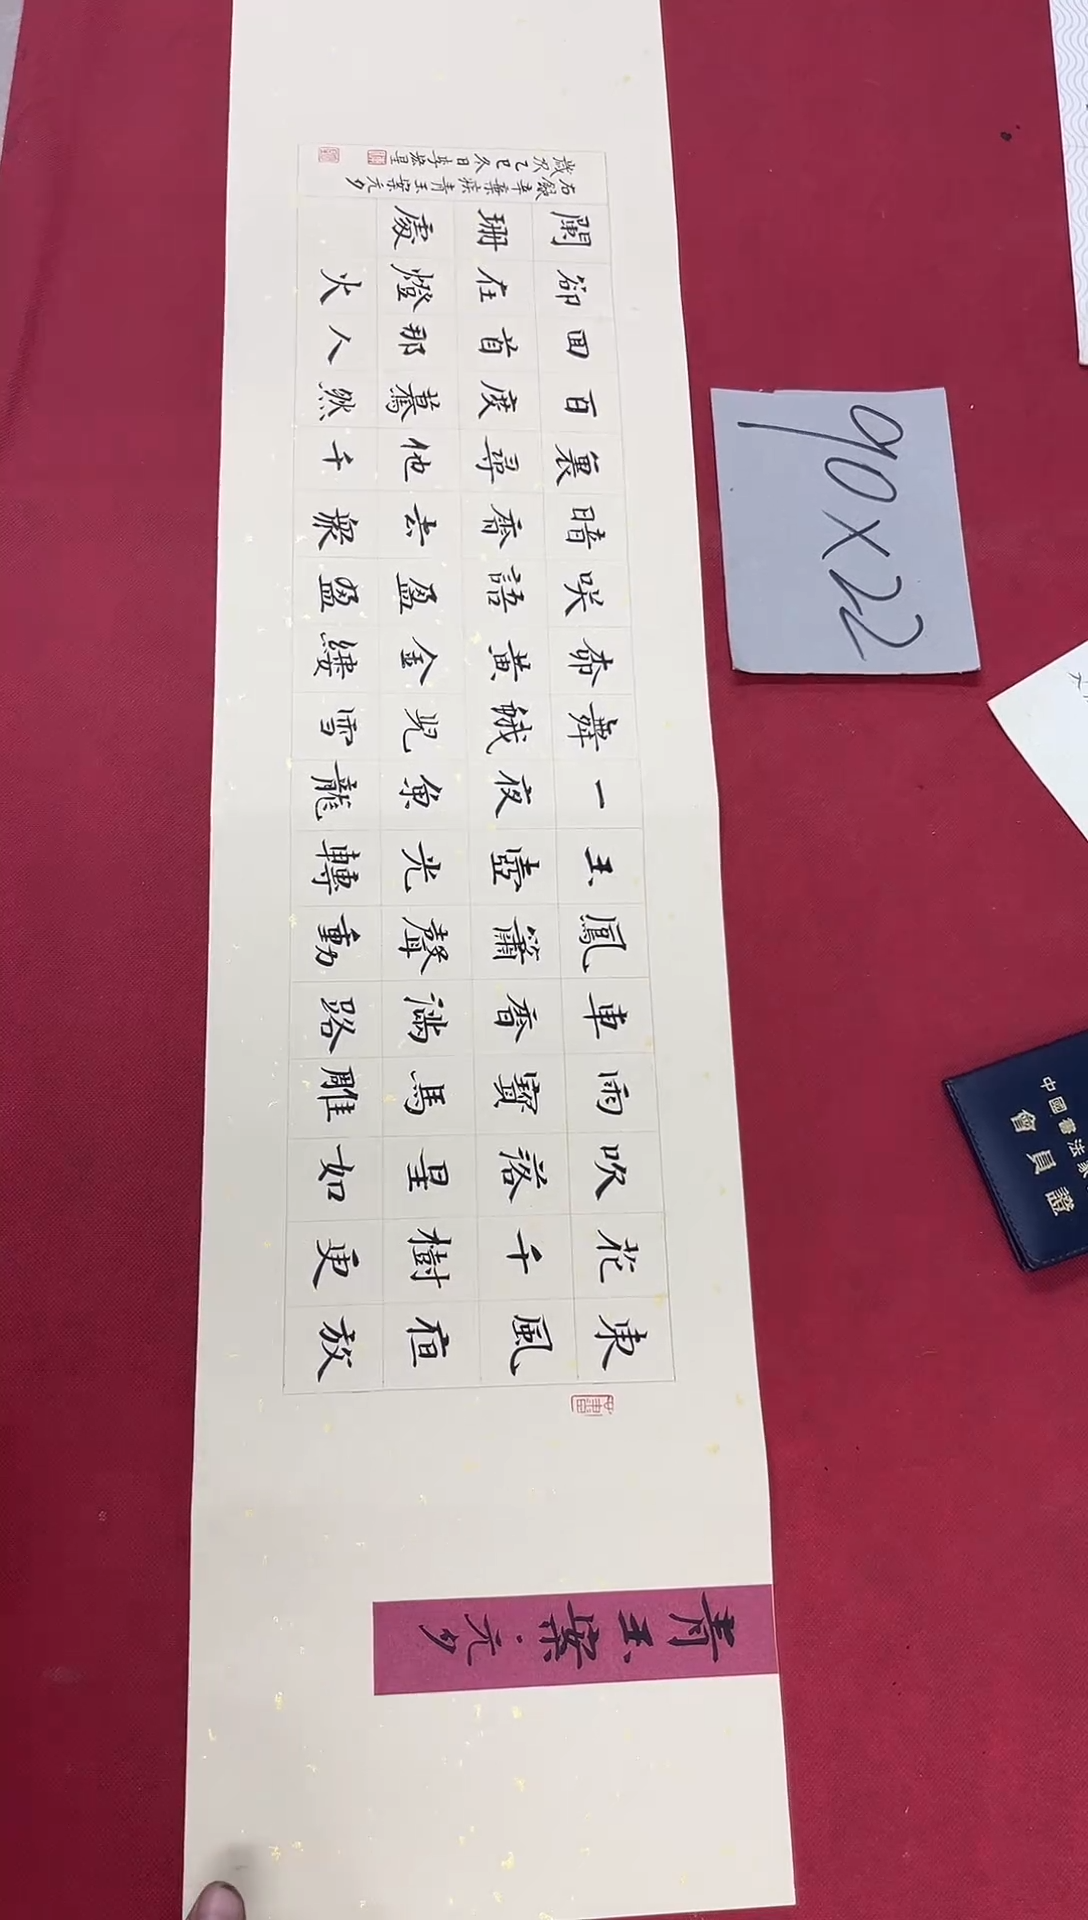 青玉案·元夕
東風亱放
花千樹更
吹落星如
雨寶馬雕
車香滿路
鳳簫聲動
玉壺光轉
一夜魚龍
舞蛾兒雪
柳黃金縷
咲語盈盈
暗香去眾
裏尋他千
百度驀然
回首那人
卻在燈火
闌珊處
右錄辛棄疾青玉案元夕
歲次乙巳冬日
90×22
中國書法家
會員證